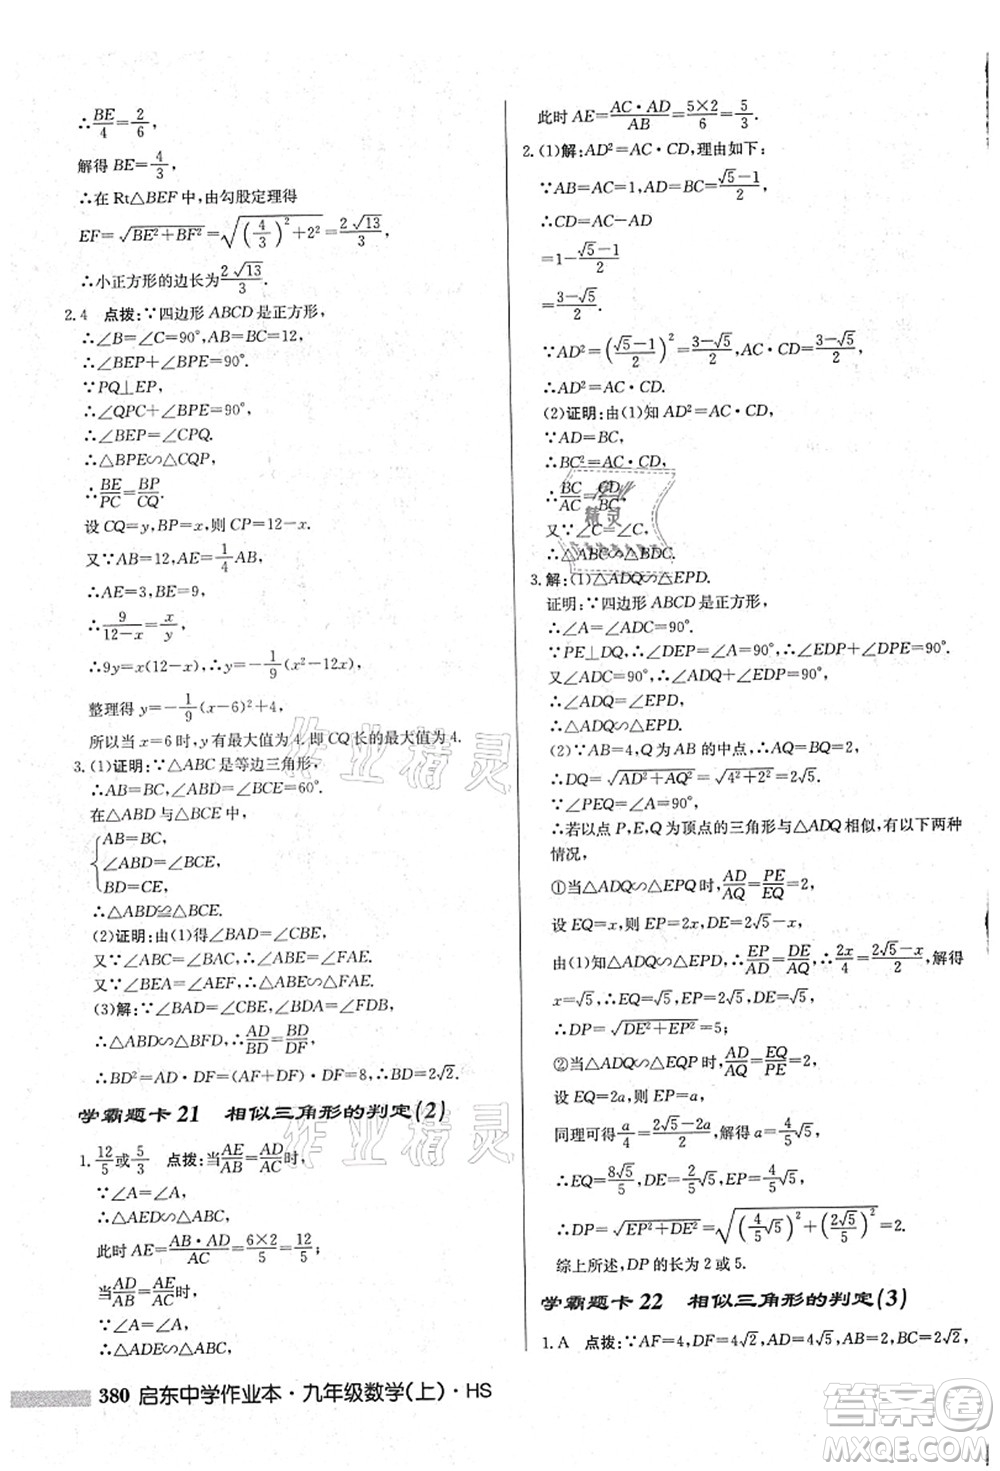 ∴BE/4=2/6,
解得 BE=4/3,
∴在 Rt△BEF 中,由勾股定理得
EF=√(BE²+BF²)=√((4/3)²+2²)=2√13/3,
∴小正方形的边长为2√13/3.
2.4 点拨:∵四边形 ABCD 是正方形,
∴∠B=∠C=90°,AB=BC=12,
∴∠BEP+∠BPE=90°.
∵PQ⊥EP,
∴∠QPC+∠BPE=90°,
∴∠BEP=∠CPQ.
∴△BPE∽△CQP,
∴BE/PC=BP/CQ.
设 CQ=y,BP=x,则 CP=12-x.
又∵AB=12,AE=1/4AB,
∴AE=3,BE=9,
∴9/(12-x)=x/y,
∴9y=x(12-x),y=-1/9(x²-12x),
整理得 y=-1/9(x-6)²+4,
所以当 x=6时,y有最大值为4.即CQ长的最大值为4.
3.(1)证明:∵△ABC是等边三角形,
∴AB=BC,∠ABD=∠BCE=60°.
在△ABD与△BCE中,
AB=BC,
∠ABD=∠BCE,
BD=CE,
∴△ABD≌△BCE.
(2)证明:由(1)得∠BAD=∠CBE,
又∵∠ABC=∠BAC,∴∠ABE=∠EAF.
又∵∠BEA=∠AEF,∴△AEF∽△BEA.
(3)解:∵∠BAD=∠CBE,∠BDA=∠FDB,
∴△ABD∽△BFD,∴AD/BD=BD/DF,
∴BD²=AD·DF=(AF+DF)·DF=8,∴BD=2√2.
学霸题卡21 相似三角形的判定(2)
1.12/5或5/3 点拨:当AE/AB=AD/AC时,
∵∠A=∠A,
∴△AED∽△ABC,
此时 AE=AB·AD/AC=6×2/5=12/5;
当AD/AB=AE/AC时,
∵∠A=∠A,
∴△ADE∽△ABC,
此时 AE=AC·AD/AB=5×2/6=5/3.
2.(1)解:AD²=AC·CD,理由如下:
∵AB=AC=1,AD=BC=(√5-1)/2,
∴CD=AC-AD
=1-(√5-1)/2
=(3-√5)/2.
∵AD²=((√5-1)/2)²=(3-√5)/2,AC·CD=(3-√5)/2,
∴AD²=AC·CD.
(2)证明:由(1)知 AD²=AC·CD,
∵AD=BC,
∴BC²=AC·CD,
∴BC/AC=CD/BC.
又∵∠C=∠C,
∴△ABC∽△BDC.
3.解:(1)△ADQ∽△EPD.
证明:∵四边形 ABCD 是正方形,
∴∠A=∠ADC=90°.
∵PE⊥DQ,∴∠PED=∠A=90°,∠EDP+∠DPE=90°.
又∠ADC=∠ADQ+∠EDP=90°,
∴∠ADQ=∠DPE,
∴△ADQ∽△EPD.
(2)∵AB=4,Q为 AB 的中点,∴AQ=2,
∴DQ=√(AD²+AQ²)=√(4²+2²)=2√5.
∵∠PEQ=∠A=90°,
∴若以点 P,E,Q为顶点的三角形与△ADQ相似,有以下两种
情况,
①当△ADQ∽△EPQ时,AD/AQ=PE/EQ=2,
设 EQ=x,则 EP=2x,DE=2√5-x,
由(1)知△ADQ∽△EPD,∴EP/AD=DE/AQ,∴2x/4=(2√5-x)/2,解得
x=√5,
∴DP=√(DE²+EP²)=5;
②当△ADQ∽△EQP时,AD/AQ=EQ/EP=2,
设 EP=a,则 EQ=2a,DE=2√5-2a,
同理可得a/4=(2√5-2a)/2,解得 a=4√5/5,
∴EQ=8√5/5,DE=2√5/5,
∴DP=√(EP²+DE²)=√((4/5√5)²+(2√5/5)²)=2.
综上所述,DP的长为2或5.
学霸题卡22 相似三角形的判定(3)
1.A 点拨:∵AF=4,DF=4√2,AB=2,BC=2√2,
380 启东中学作业本·九年级数学(上)·HS
作业精灵
作业精灵
精灵
答案圈
MXQE.COM